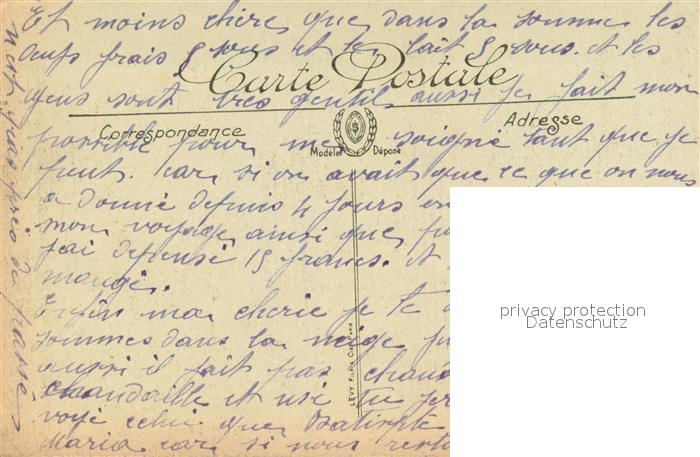 Et moins chere que dans la somme les
œufs frais 5 sous et le lait 5 sous. et les
Carte Postale
gens sont tres gentil aussi je fait mon
Correspondance
Adresse
possible pour me soigné tant que je
Modele Déposé
peut. car si on avait que ce que on nous
a donné depuis 4 jours on
mon voyage ainsi que
j'ai depensé 15 francs. et
mangé.
Enfin ma cherie je te
sommes dans la neige
privacy protection
Datenschutz
aussi il fait pas chaud
chandaille et usé tu
voyé celui que Batiste
Maria car si nous rest
LEVY FILS & Cie PARIS